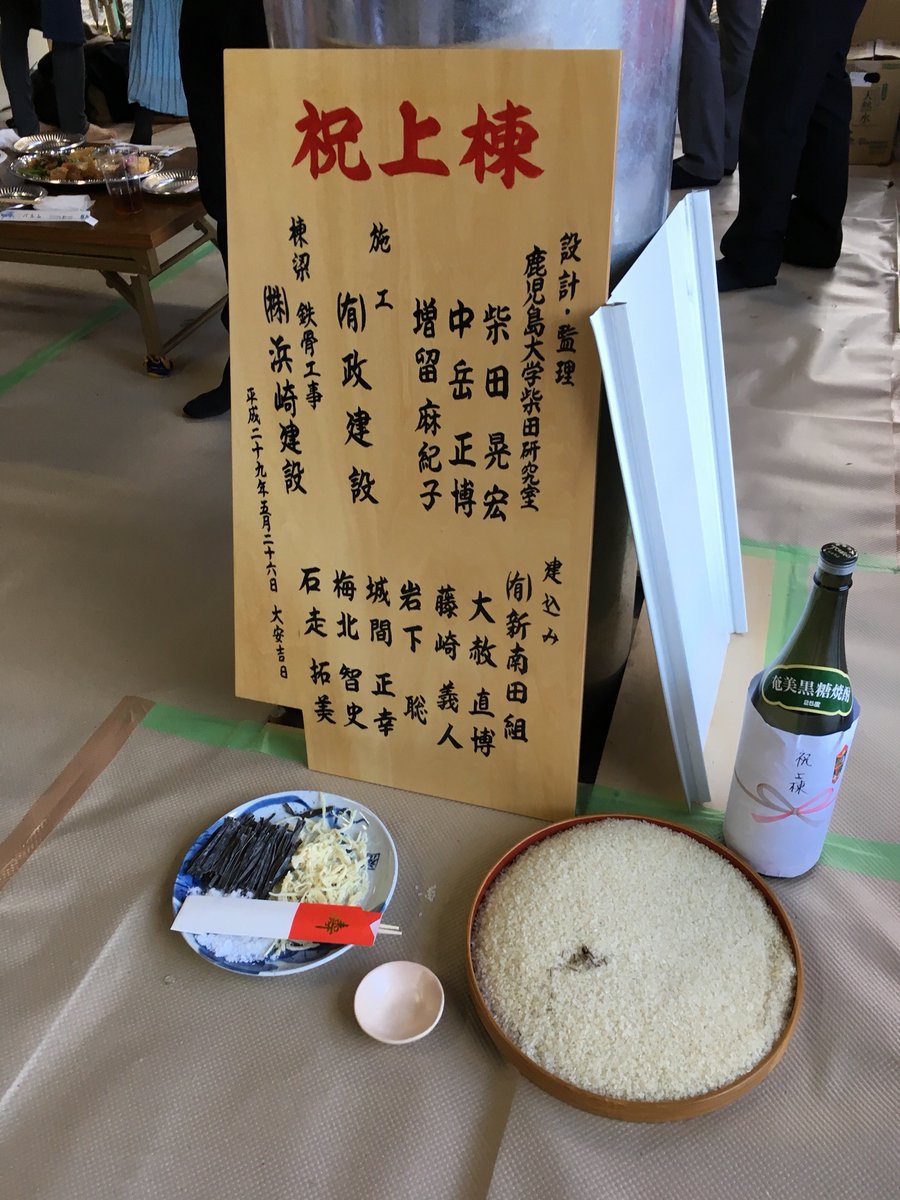 祝上棟
設計・監理
鹿児島大学柴田研究室
柴田 晃宏
中岳 正博
増留 麻紀子
施工
㈲政建設
棟梁 鉄骨工事
㈱浜崎建設
平成二十九年五月二十六日 大安吉日
建込み
㈲新南田組
大赦 直博
藤崎 義人
岩下 聡
城間 正幸
梅北 智史
石走 拓美
奄美黒糖焼酎
25度
祝上棟
天然水